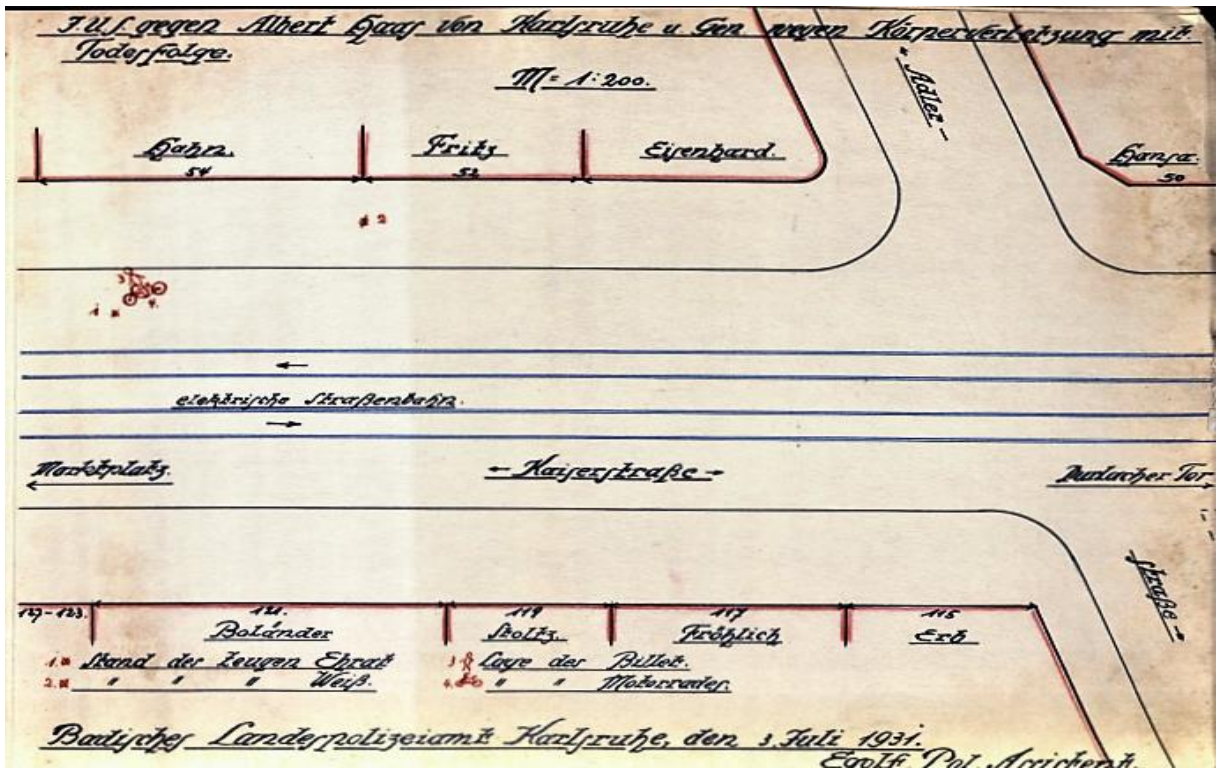 J.U.S. gegen Albert Haas von Karlsruhe u Gen wegen Körperverletzung mit
Todesfolge.
M = 1:200.
"Adler-
Hahn.
54
Fritz
52
Eisenhard.
Hansa.
50
2
3
1
4.
elektrische Straßenbahn.
Marktplatz.
Kaiserstraße
Durlacher Tor
straße
127-123.
121.
119
117
115
Boländer
Stoltz.
Fröhlich
Erb
1. Stand der Zeugen Ehrat
2. " " " Weiß.
3 Lage des Billet.
4. " " Motorrades.
Badisches Landespolizeiamt Karlsruhe, den 3. Juli 1931.
Egolf. Pol. Assistent.